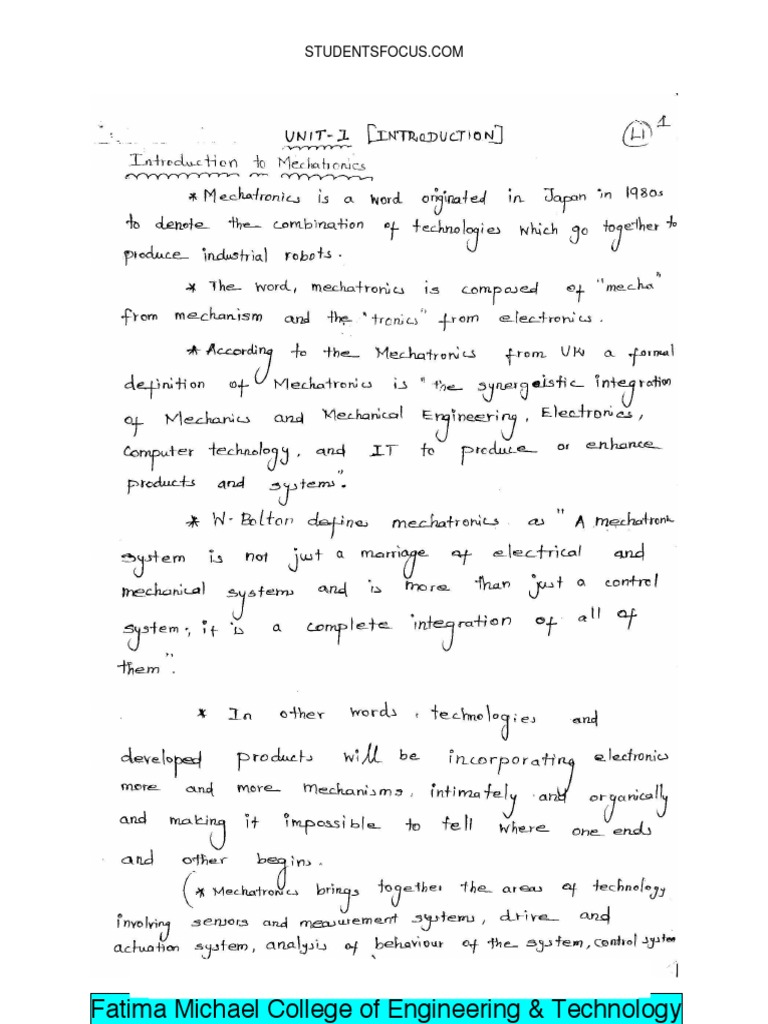 STUDENTSFOCUS.COM
UNIT-I [INTRODUCTION] L1 1
Introduction to Mechatronics
* Mechatronics is a word originated in Japan in 1980s
to denote the combination of technologies which go together to
produce industrial robots.
* The word, mechatronics is composed of "mecha"
from mechanism and the "tronics" from electronics.
* According to the Mechatronics from UK a formal
definition of Mechatronics is "the synergeistic integration
of Mechanics and Mechanical Engineering, Electronics,
Computer technology, and IT to produce or enhance
products and systems".
* W. Bolton define mechatronics as "A mechatronic
system is not just a marriage of electrical and
mechanical systems and is more than just a control
system; it is a complete integration of all of
them".
* In other words, technologies and
developed products will be incorporating electronics
more and more mechanisms, intimately and organically
and making it impossible to tell where one ends
and other begins.
(* Mechatronics brings together the areas of technology
involving sensors and measurement systems, drive and
actuation system, analysis of behaviour of the system, control system
1
Fatima Michael College of Engineering & Technology